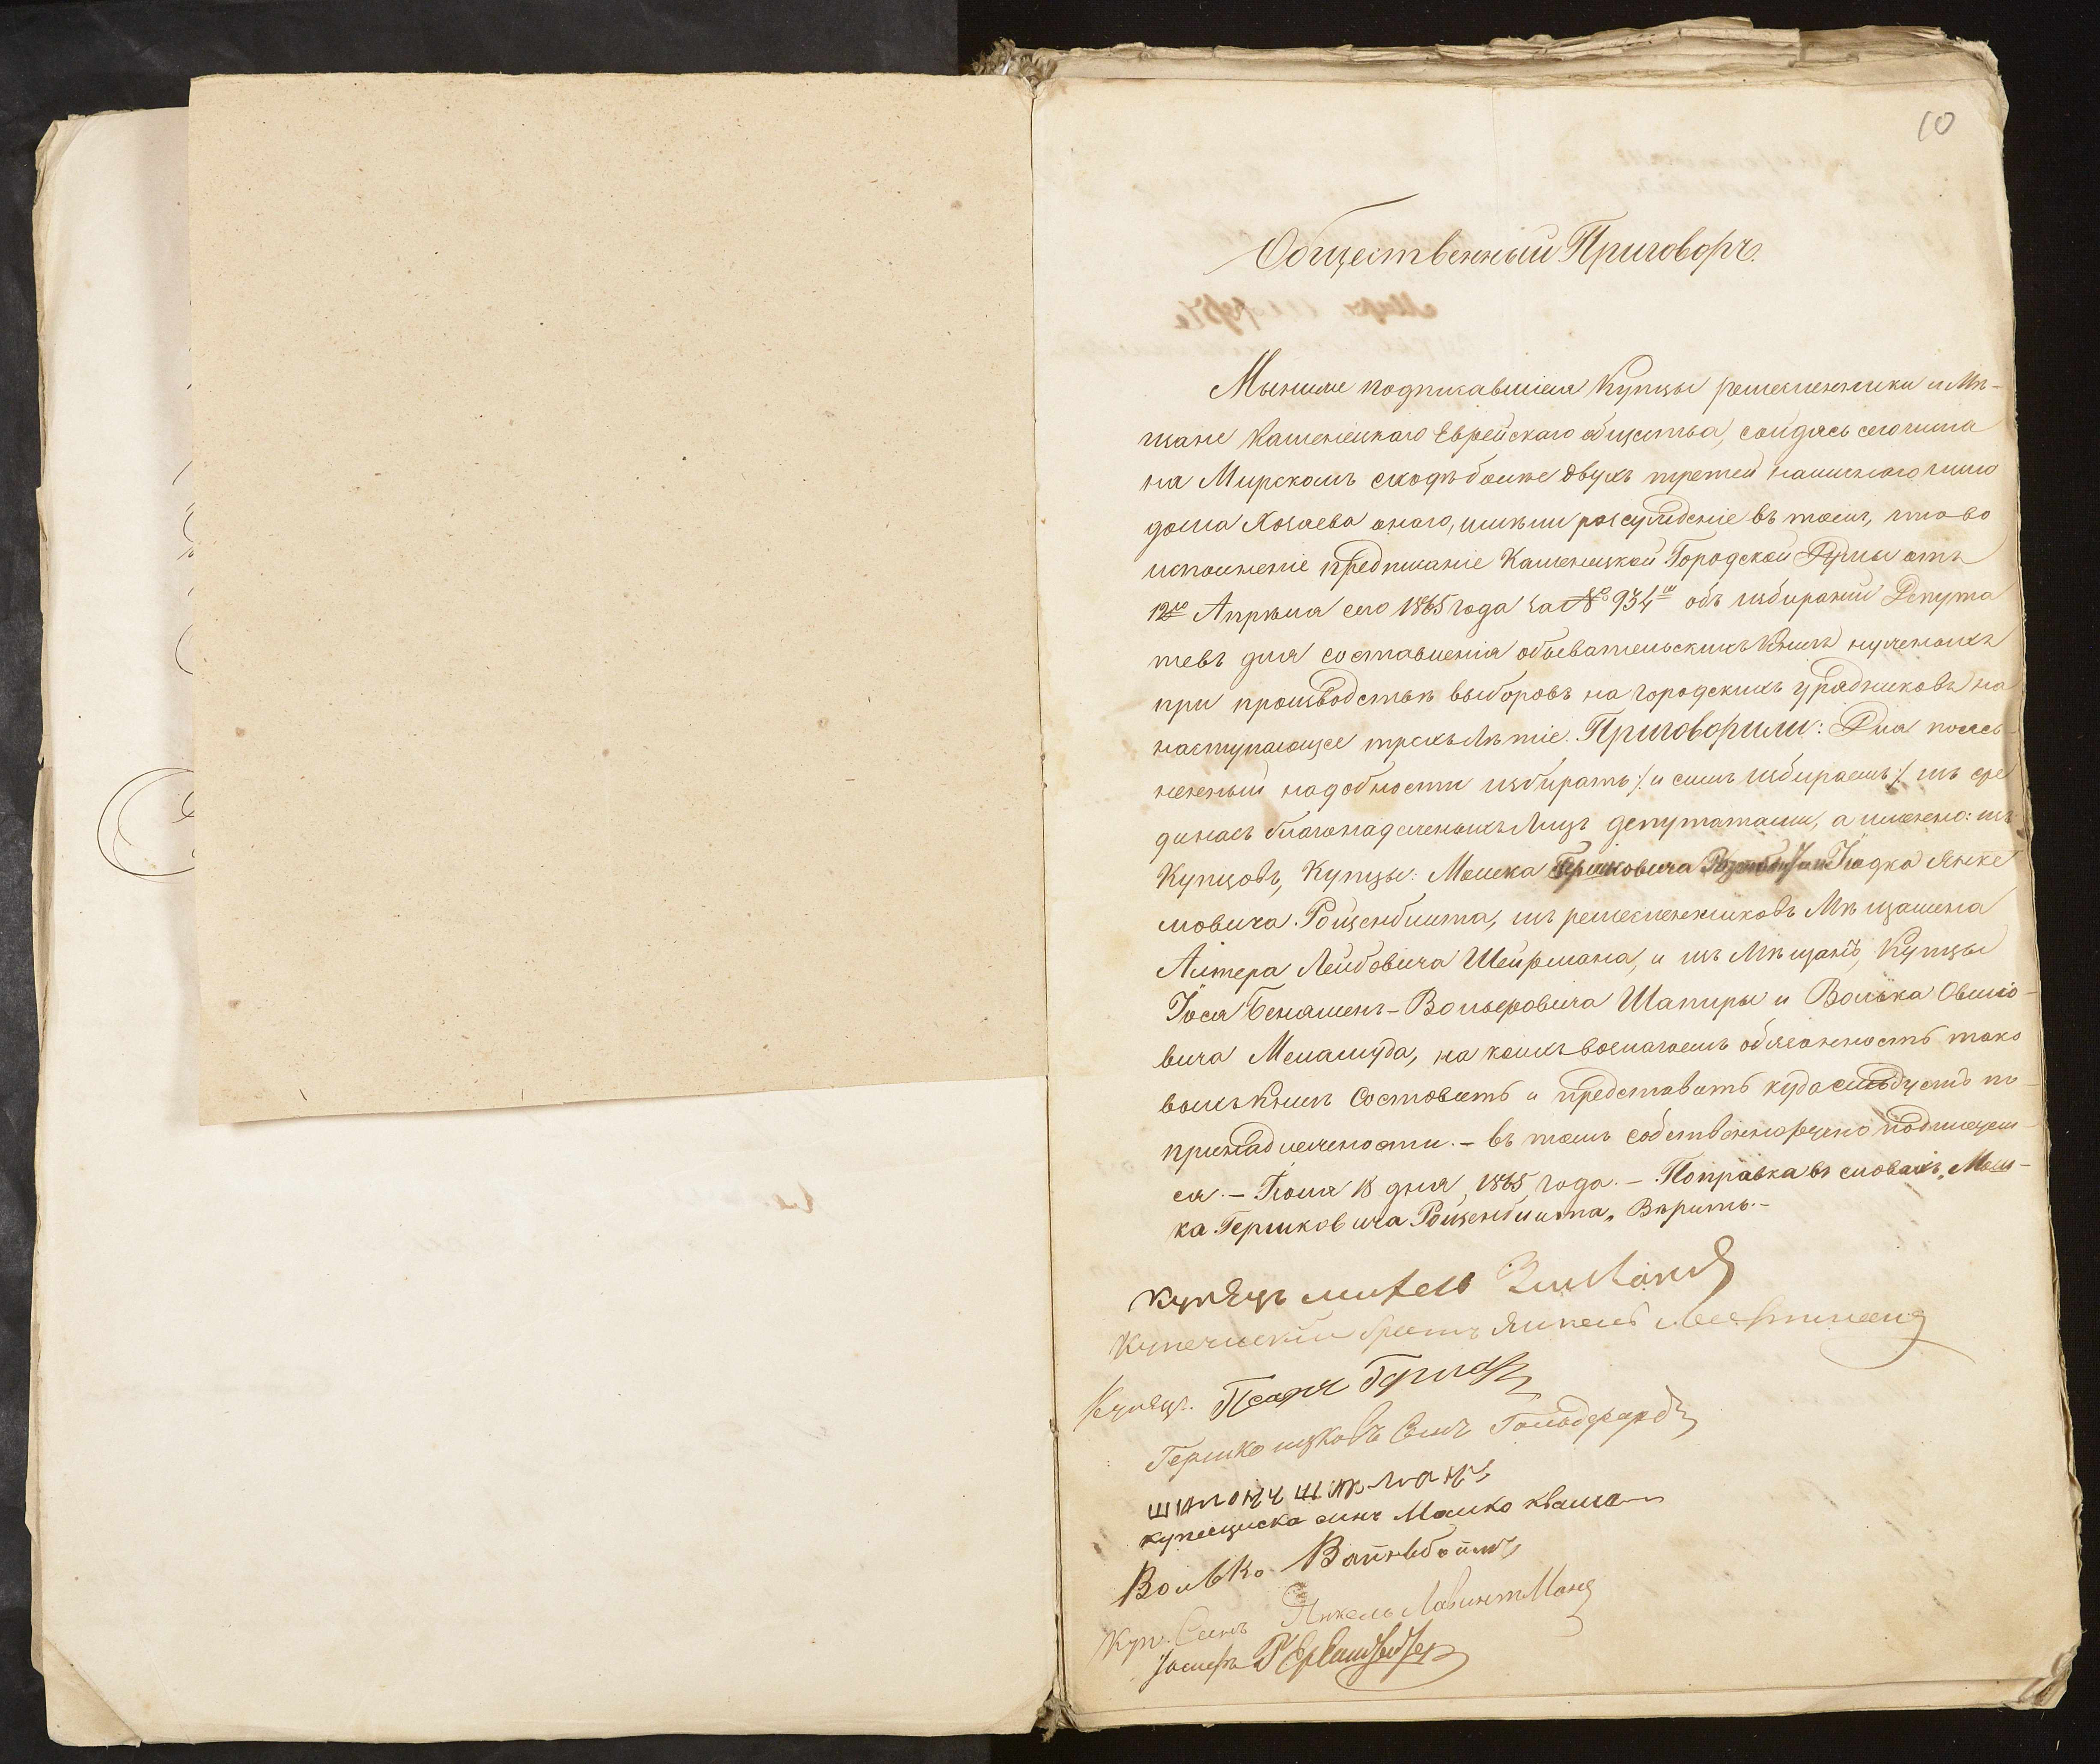 10
Общественный Приговоръ.
Мыниже подписавшіеся Купцы ремесленники и Мѣ-
щане Каменецкаго Еврейскаго общества, сойдясь сегочисла
на Мирскомъ сходѣ болѣе двухъ третей наличнаго число
дома Хозаева онаго, имѣли разсужденіе въ томъ, что во
исполненіе предписаніе Каменецкой Городской Думы отъ
12го Апрѣля сего 1865 года за № 934м объ избираніи Депута
товъ для составленія обывательскихъ Книгъ нужныхъ
при производствѣ выборовъ на городскихъ урядниковъ на
наступающее трехълѣтіе. Приговорили: Для поясь-
ненный надобности избирать :/ и симъ избираемъ :/ изъ сре
динась благонадежныхъ Лицъ депутатами, а именно: изъ
Купцовъ, Купцы: Мошка Гершковича Юдка Янке
лѣвича Розенблита, изъ ремесленниковъ Мѣщанина
Алтера Лейбовича Шейрмана, и изъ Мѣщанъ, Купцы
Іося Беняменъ-Вольфовича Шапиры и Волька Овшіо-
вича Меламуда, на коихъ возлагаемъ обязанность тако
выхъ Книгъ Составить и представить куда слѣдуетъ по
принадлежности. - въ томъ собственноручно подписуем-
ся. - Іюня 18 дня, 1865 года. - Поправка въ словахъ „Мош-
ка Гершковича Розенблита„ Вѣрить. -
Купецъ
Купеческій братъ Янкель
Купецъ.
Гершко ицковъ Сынъ Гольдфарбъ
шимонъ
купеческа сынъ Мошко
Волько Вайнбойм
Куп. Сынъ Янкель
Іосифъ